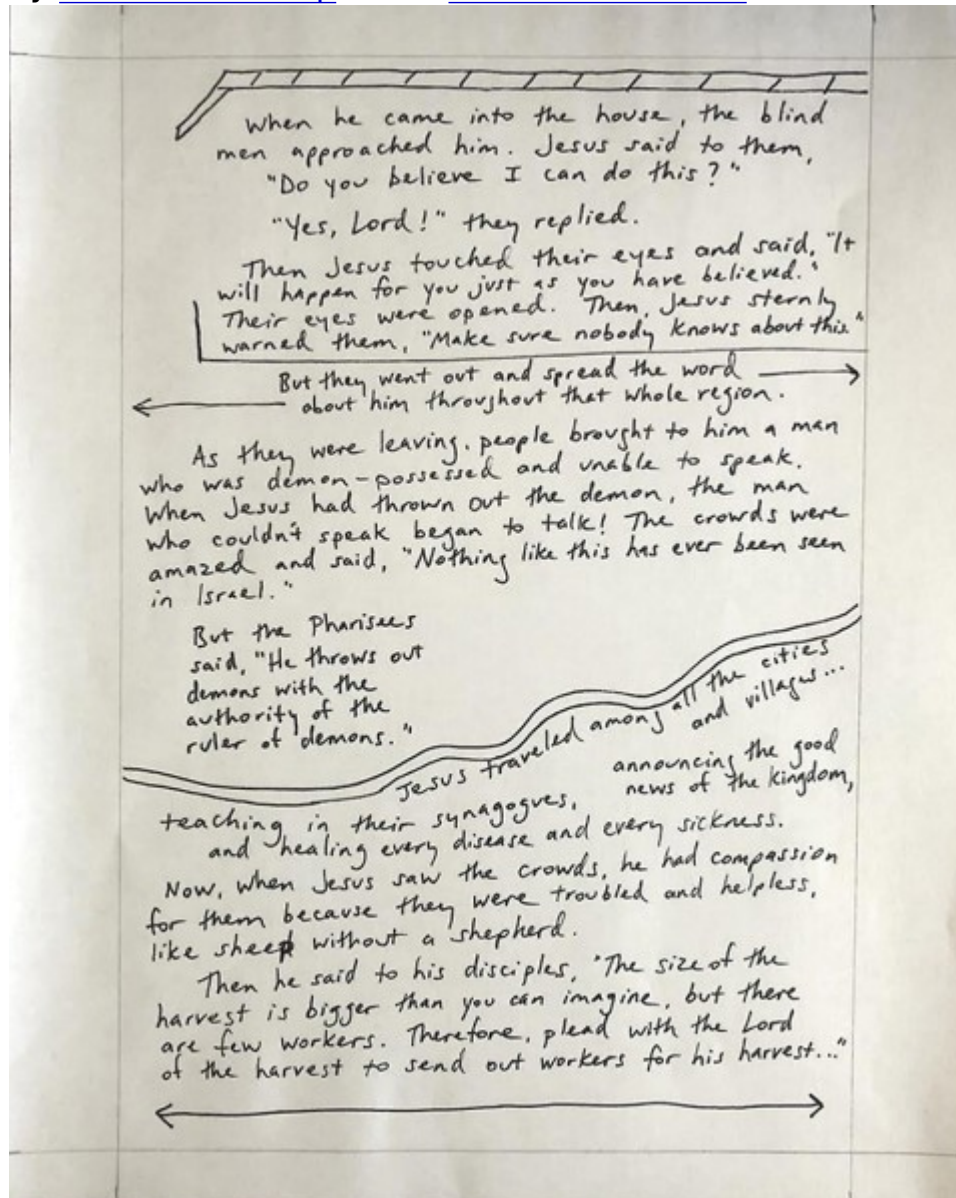 When he came into the house, the blind
men approached him. Jesus said to them,
"Do you believe I can do this?"
"Yes, Lord!" they replied.
Then Jesus touched their eyes and said, "It
will happen for you just as you have believed."
Their eyes were opened. Then, Jesus sternly
warned them, "Make sure nobody knows about this."
But they went out and spread the word
about him throughout that whole region.
As they were leaving, people brought to him a man
who was demon-possessed and unable to speak.
When Jesus had thrown out the demon, the man
who couldn't speak began to talk! The crowds were
amazed and said, "Nothing like this has ever been seen
in Israel."
But the Pharisees
said, "He throws out
demons with the
authority of the
ruler of demons."
Jesus traveled among all the cities
and villages...
announcing the good
news of the kingdom,
teaching in their synagogues,
and healing every disease and every sickness.
Now, when Jesus saw the crowds, he had compassion
for them because they were troubled and helpless,
like sheep without a shepherd.
Then he said to his disciples, "The size of the
harvest is bigger than you can imagine, but there
are few workers. Therefore, plead with the Lord
of the harvest to send out workers for his harvest..."